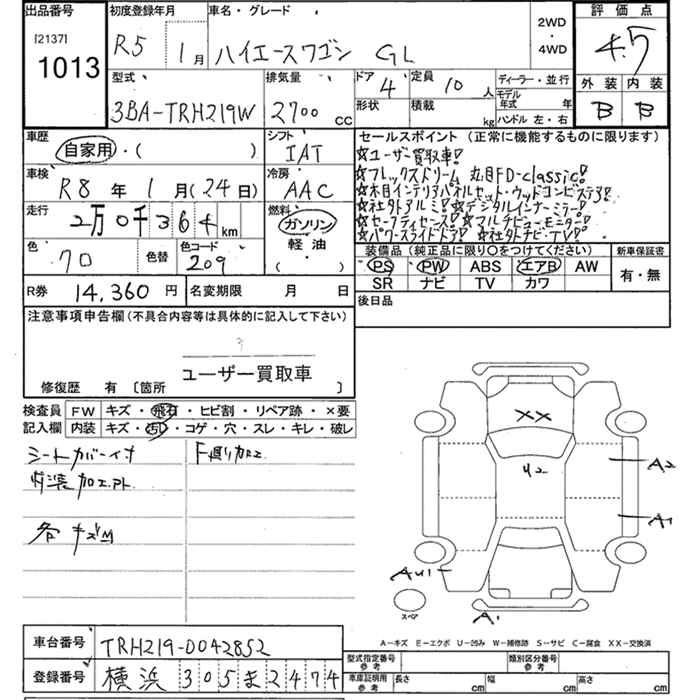 出品番号
[2137]
1013
初度登録年月
R5 1月
車名・グレード
ハイエースワゴン GL
2WD
・
4WD
評価点
4.5
外装 内装
B B
型式
3BA-TRH219W
排気量
2700cc
ドア
4
定員
10人
形状
積載
kg
ディーラー・並行
モデル年式 年
ハンドル 左・右
車歴
自家用・( )
シフト
IAT
車検
R8年1月(24日)
冷房
AAC
走行
2万0千364km
燃料
ガソリン
軽油
( )
色
70
色替
色コード
209
セールスポイント (正常に機能するものに限ります)
☆ユーザー買取車!
☆フレックスドリーム 丸目FD-classic!
☆木目インテリアパネルセット・ウッドコンビステア!
☆社外アルミ! ☆デジタルインナーミラー!
☆セーフティセンス! ☆マルチビューモニター!
☆パワースライドドア! ☆社外ナビ・TV!
装備品 (純正品に限り○をつけてください)
PS PW ABS エアB AW
SR ナビ TV カワ
新車保証書
有・無
R券 14,360円
名変期限 月 日
後日品
注意事項申告欄(不具合内容等は具体的に記入して下さい)
ユーザー買取車
修復歴 有 〔箇所 〕
検査員 FW キズ・飛石・ヒビ割・リペア跡・×要
記入欄 内装 キズ・汚れ・コゲ・穴・スレ・キレ・破レ
シートカバーイナ
F廻り加工
内装加工アト
各キズM
XX
U2
A2
A1
AU1
A1
スペア
A-キズ E-エクボ U-凹み W-補修跡 S-サビ C-腐食 XX-交換済
車台番号 TRH219-0042852
登録番号 横浜305ま2474
型式指定番号 参考
類別区分番号 参考
車庫証明用 参考
長さ cm
幅 cm
高さ cm